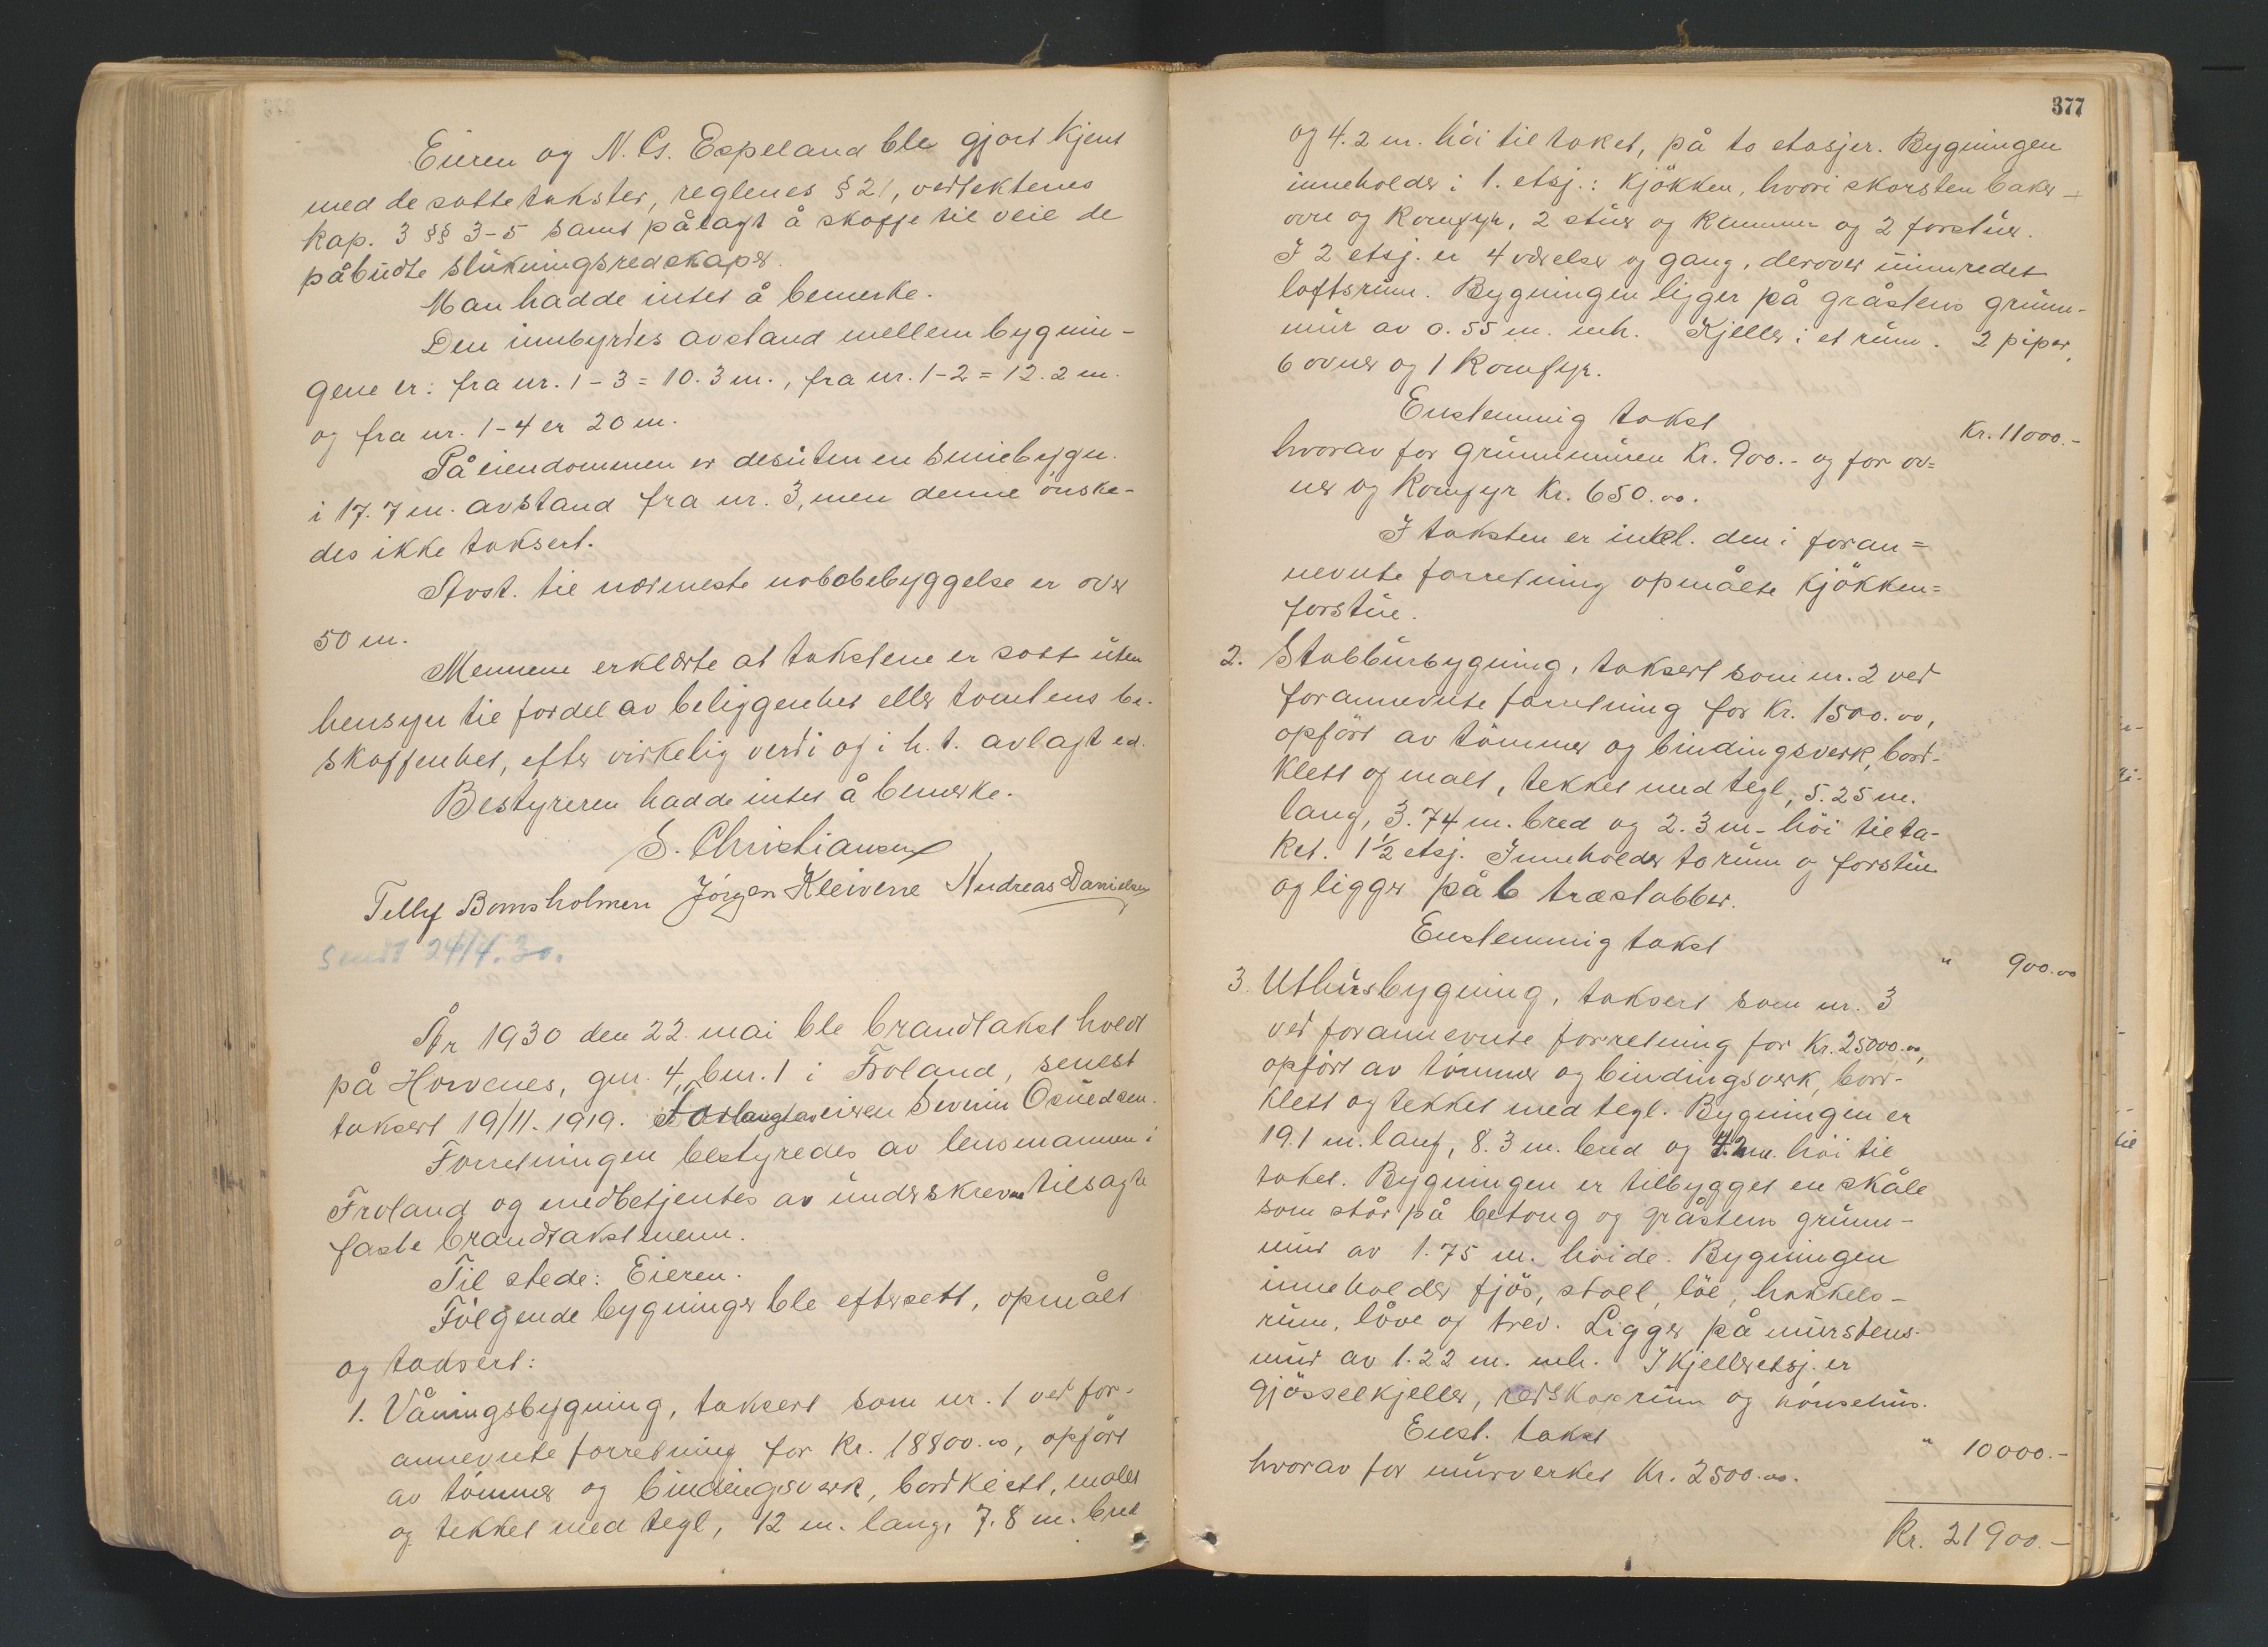 Eieren og N. Gs. Espeland ble gjort kjent
med de satte takster, reglenes § 21, vedtektenes
kap. 3 §§ 3-5 samt pålagt å skaffe til veie de
påbudte slukningsredskaper.
Man hadde intet å bemerke.
Den innbyrdes avstand mellem bygnin-
gene er: fra nr. 1-3 = 10.3 m., fra nr. 1-2 = 12.2 m.
og fra nr. 1-4 er 20 m.
På eiendommen er desuten en smiebygn.
i 17.7 m. avstand fra nr. 3, men denne ønske-
des ikke taksert.
Avst. til nærmeste nabobebyggelse er over
50 m.
Mennene erklærte at takstene er satt uten
hensyn til fordel av beliggenhet eller tomtens be-
skaffenhet, efter virkelig verdi og i h. t. avlagt ed.
Bestyreren hadde intet å bemerke.
S. Christiansen
Tellef Bomsholmen Jörgen Kleivene Andreas Danielsen
Sendt 24/4.30.
År 1930 den 22. mai ble brandtakst holdt
på Horvenes, gnr. 4, bnr. 1 i Froland, senest
taksert 19/11.1919. Forlangt av eieren Severin Osuldsen.
Forretningen bestyredes av lensmannen i
Froland og medbetjentes av underskrevne tilsagte
faste brandtakstmenn.
Til stede: Eieren.
Fölgende bygninger ble eftersett, opmålt
og taksert:
1. Våningsbygning, taksert som nr. 1 ved for-
annevnte forretning for kr. 18800.00, opfört
av tömmer og bindingsverk, bordklett, malt
og tekket med tegl, 12 m. lang, 7.8 m. bred
377
og 4.2 m. höi til taket, på to etasjer. Bygningen
inneholder i 1. etsj.: Kjökken, hvori skorsten baker-
ovn og komfyr, 2 stuer og kammer og 2 forstuer.
I 2 etsj. er 4 værelser og gang, derover uinnredet
loftsrum. Bygningen ligger på gråstens grunn-
mur av 0.55 m. mh. Kjeller i et rum. 2 piper,
6 ovner og 1 komfyr.
Enstemmig takst Kr. 11000.-
hvorav for grunnmuren Kr. 900.- og for ov=
ner og komfyr Kr. 650.00.
I taksten er inkl. den i foran=
nevnte forretning opmålte kjökken=
forstue.
2. Stabbursbygning, taksert som nr. 2 ved
forannevnte forretning for Kr. 1500.00,
opfört av tömmer og bindingsverk, bord-
klett og malt, tekket med tegl, 5.25 m.
lang, 3.74 m. bred og 2.3 m. höi til ta-
ket. 1½ etsj. Inneholder to rum og forstue
og ligger på 6 træstabber.
Enstemmig takst " 900.00
3. Uthusbygning, taksert som nr. 3
ved forannevnte forretning for Kr. 25000.00,
opfört av tömmer og bindingsverk, bord-
klett og tekket med tegl. Bygningen er
19.1 m. lang, 8.3 m. bred og 4.2 m. höi til
taket. Bygningen er tilbygget en skåle
som står på betong og gråstens grunn-
mur av 1.75 m. höide. Bygningen
inneholder fjös, stall, löe, hakkels-
rum, låve og trev. Ligger på murstens-
mur av 1.22 m. mh. I kjelleretsj. er
gjösselkjeller, redskaprum og hönsehus.
Enst. takst " 10000.-
hvorav for murverket Kr. 2500.00.
Kr. 21900.-